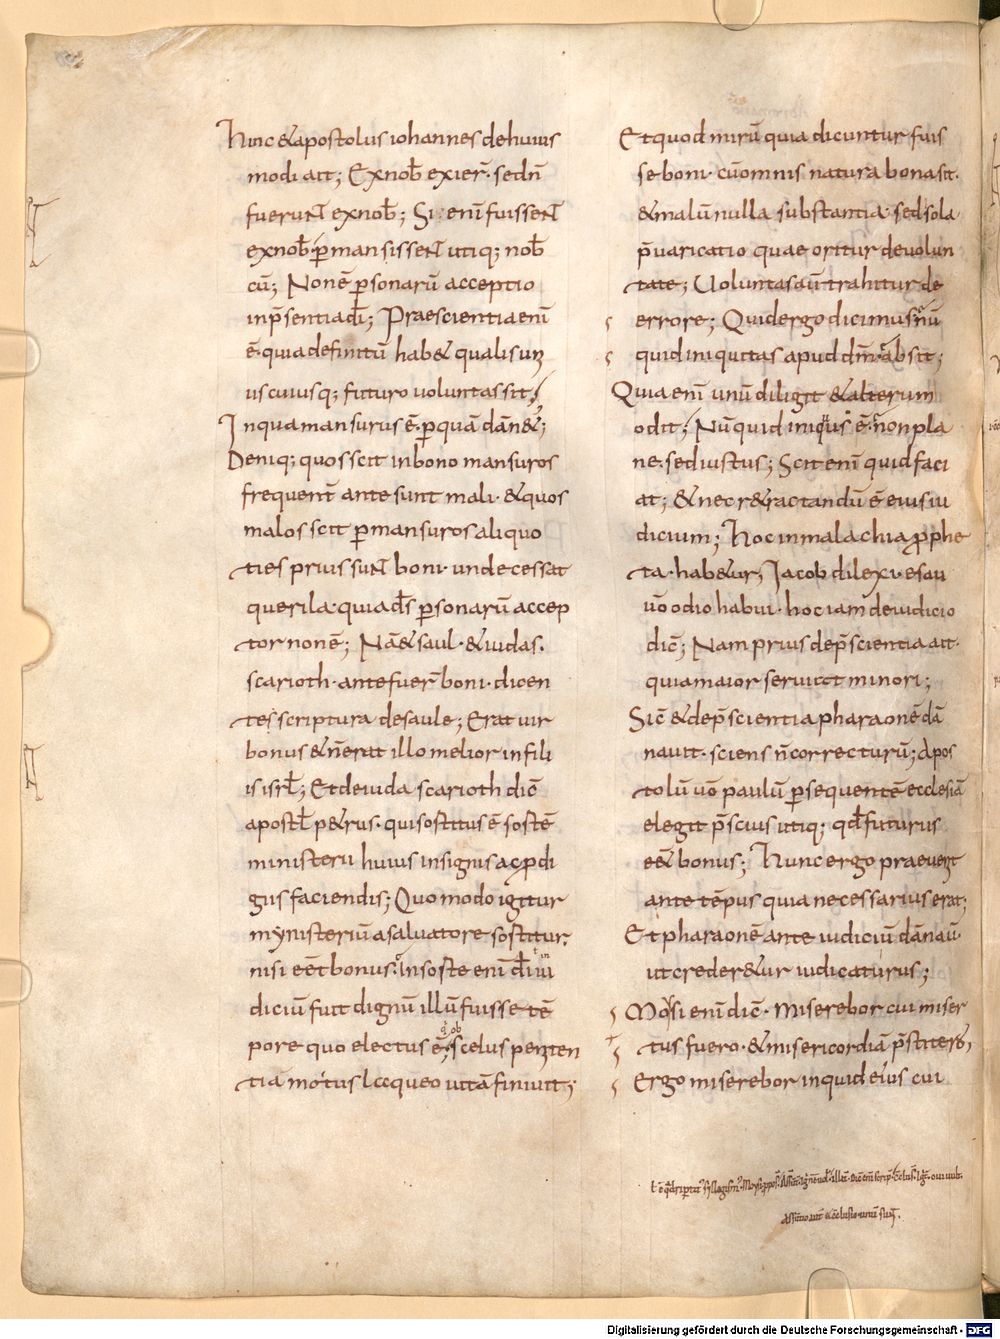 Hinc & apostolus iohannes de huius
modi ait; Ex nob̄ exier̄· sed n̄
fuerunt ex nob̄; Si enī fuissent
ex nob̄· p̱mansissent utiq; nob̄
cū; Non ē p̱sonarū acceptio
in p̄sentia dī; Praescientia enī
ē· quia definitū hab& qualis un
us cuiusq; futuro uoluntas sit;
In qua mansurus ē· p̱ quā dān&ur;
Deniq; quos scit in bono mansuros
frequent̄ ante sunt mali· & quos
malos scit p̱mansuros aliquo
ties prius sunt boni· unde cessat
querila· quia d̄s p̱sonarū accep
tor non ē; Nā & saul· & iudas·
scarioth· ante fuer̄ boni· dicen
te scriptura de saule; Erat uir
bonus & n̄ erat illo melior in fili
is isrl̄; Et de iuda scarioth dic̄
apostl̄ p&rus· qui sortitus ē sortē
ministerii huius in signis ac ꝓdi
giis faciendis; Quomodo igitur
mynisteriū a saluatore sortitur·
nisi eēt bonus· in sorte enī dī iu
diciū fuit dignū illū fuisse tē
pore quo electus ē; scelus peniten
tia motus laqueo uitā finiuit;
Et quod mirū quia dicuntur fuis
se boni· cū omnis natura bona sit·
& malū nulla substantia· sed sola
p̄uaricatio quae oritur de uolun
tate; Uoluntas aū trahitur de
errore; Quid ergo dicimus nū
quid iniquitas apud dm̄· absit;
Quia enī unū diligit & alterum
odit; Nūquid iniquus ē· non pla
ne· sed iustus; Scit enī quid faci
at; & nec r&ractandū ē eius iu
dicium; Hoc in malachia ꝓphe
ta· hab&ur; Iacob dilexi· esau
uō odio habui· hoc iam de iudicio
dic̄; Nam prius de p̄scientia ait·
quia maior seruiet minori;
Sic̄ & de p̄scientia pharaonē dā
nauit· sciens n̄ correcturū; Apos
tolū uō paulū p̱sequentē ecclesiā
elegit p̄scius utiq; qd̄ futurus
eēt bonus; Hunc ergo praeuenit
ante tēpus quia necessarius erat;
Et pharaonē ante iudiciū dānau·
ut creder&ur iudicaturus;
Moysi enī dic̄· Miserebor cui miser
tus fuero· & misericordiā p̄stitero;
Ergo miserebor inquid eius cui